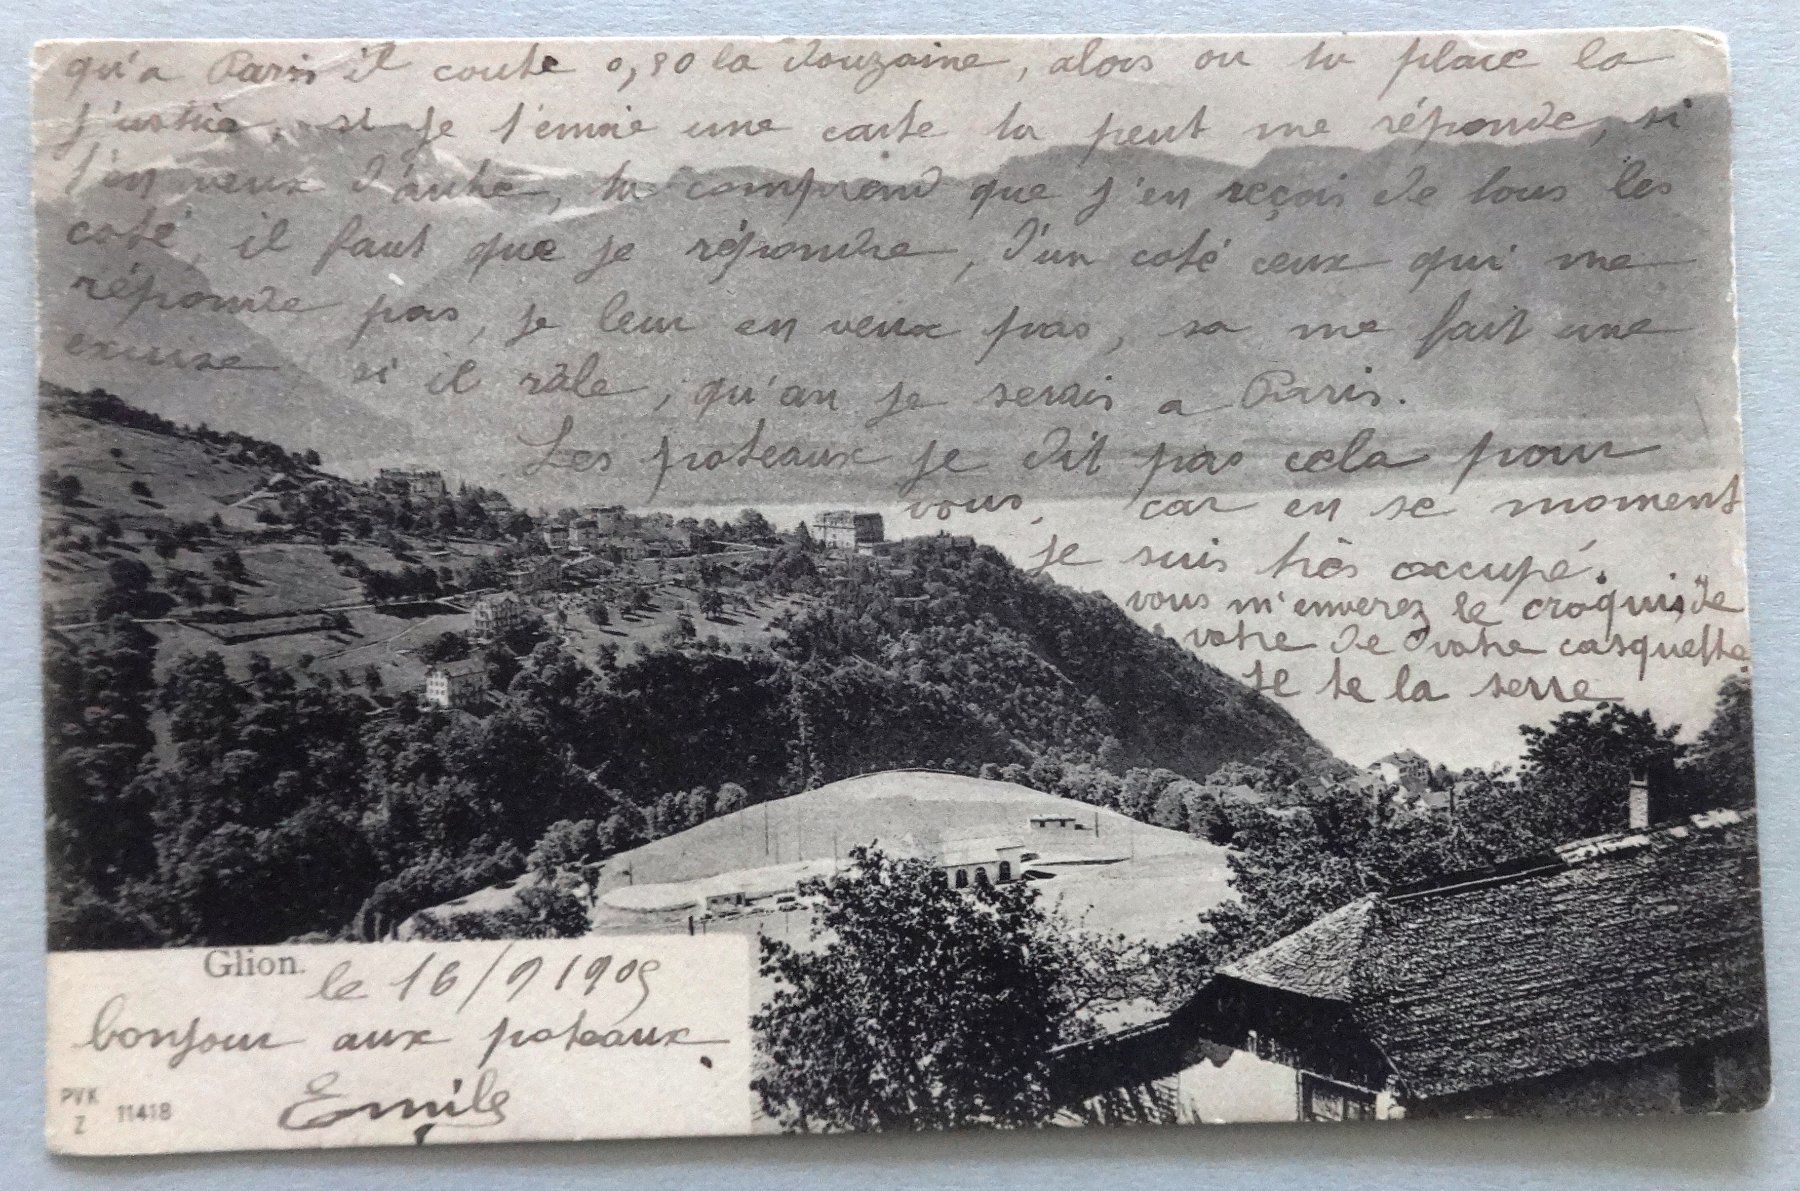 qu'a Paris il coute 0,90 la douzaine, alors ou tu place la
justice, si je t'envoie une carte tu peut me réponde, si
t'en veux d'autre, tu comprend que j'en reçois de tous les
coté, il faut que je répondre, d'un coté ceux qui me
réponde pas, je leur en veux pas, sa me fait une
excuise, si il râle, qu'an je serais a Paris.
Les poteaux je dit pas cela pour
vous, car en se moment
je suis très occupé.
vous m'enverez le croquis de
votre de votre casquette.
Je te la serre
Glion. le 16/9 1905
bonjour aux poteaux.
Emile
PVK
Z 11418